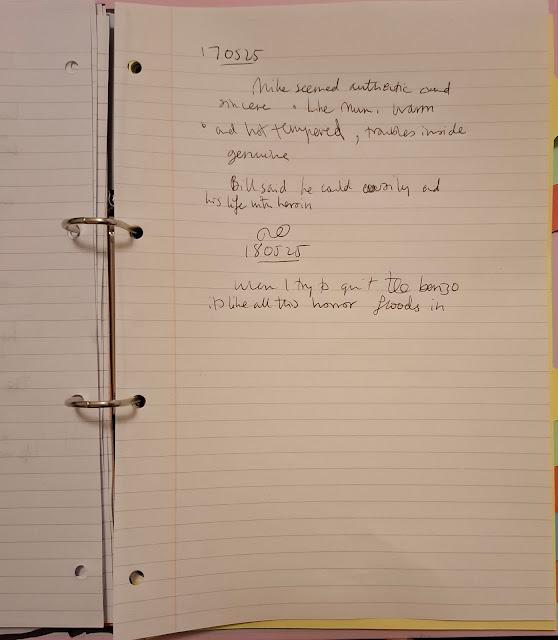 170525
Mike seemed authentic and
sincere. Like Mum, warm
and hot tempered, troubles inside
genuine
Bill said he could easily end
his life with heroin
180525
When I try to quit the benzo
it's like all this horror floods in